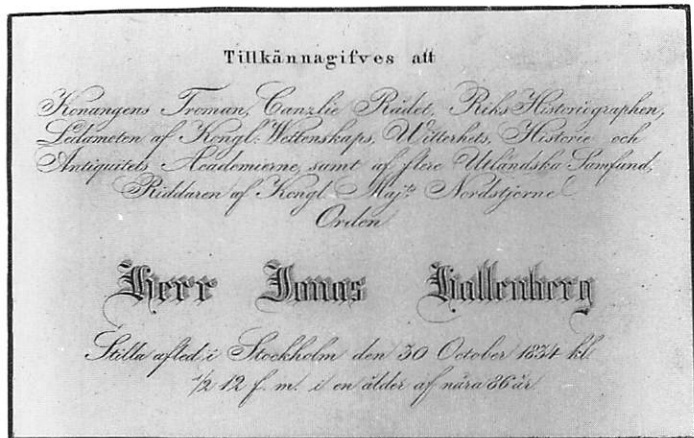 Tillkännagifves att
Konungens Troman, Canzlie Rådet, Riks Historiographen,
Ledamoten af Kongl. Wettenskaps, Witterhets, Historie och
Antiquitets Academierne, samt af flere Utländska Samfund,
Riddaren af Kongl. Maj:ts Nordstjerne
Orden
Herr Jonas Hallenberg
Stilla afled i Stockholm den 30 October 1834 kl.
1/2 12 f. m. i en ålder af nära 86 år